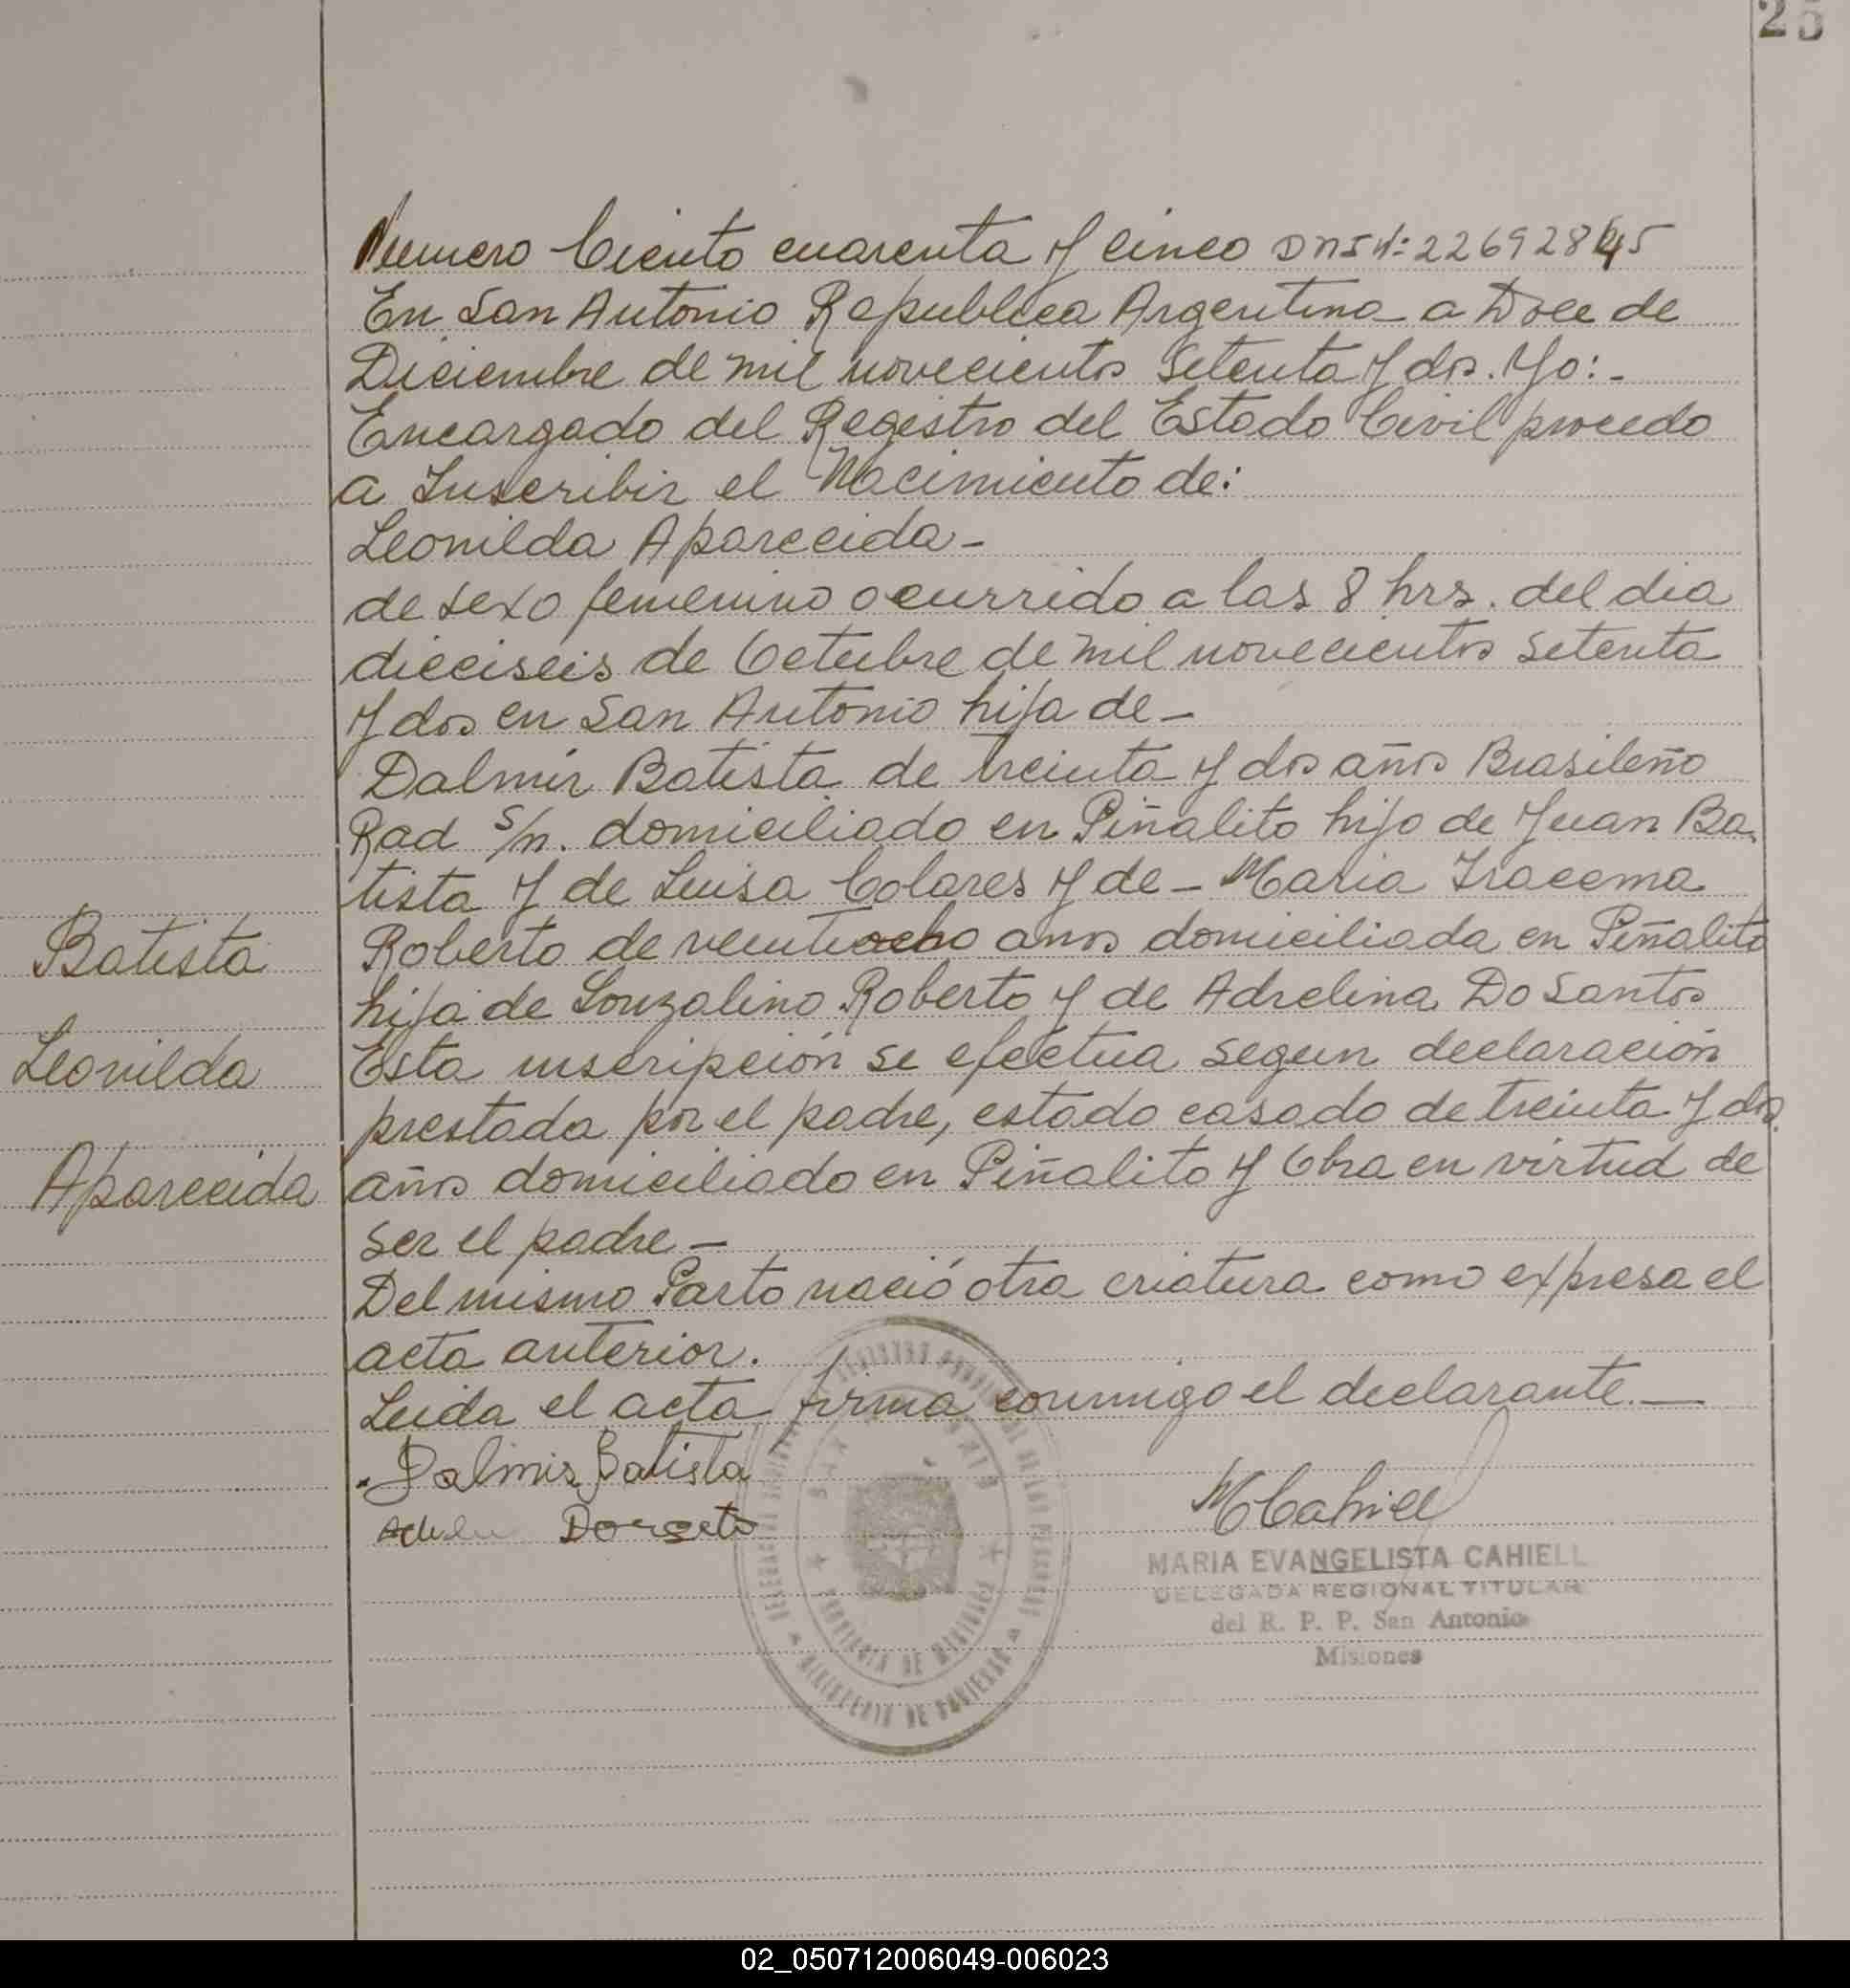 25
Numero Ciento cuarenta y cinco DNI N: 22692845
En San Antonio Republica Argentina a Doce de
Diciembre de mil novecientos setenta y dos. Yo:-
Encargado del Registro del Estado Civil procedo
a Inscribir el Nacimiento de:
Leonilda Aparecida-
de sexo femenino ocurrido a las 8 hrs. del dia
dieciseis de Octubre de mil novecientos setenta
y dos en San Antonio hija de-
Dalmir Batista de treinta y dos años Brasileño
Rad s/n. domiciliado en Piñalito hijo de Juan Ba-
tista y de Luisa Colares y de- Maria Iracema
Batista
Roberto de veintiocho anos domiciliada en Piñalito
hija de Louzalino Roberto y de Adrelina Do Santos
Leonilda
Esta inscripción se efectua segun declaración
prestada por el padre, estado casado de treinta y dos
Aparecida
años domiciliado en Piñalito y Obra en virtud de
ser el padre-
Del mismo Parto nació otra criatura como expresa el
acta anterior.
Leida el acta firma conmigo el declarante.-
Dalmir Batista
MCahiell
Dorneto
MARIA EVANGELISTA CAHIELL
DELEGADA REGIONAL TITULAR
del R. P. P. San Antonio
Misiones
PROVINCIA DE MISIONES
MINISTERIO DE GOBIERNO
02_050712006049-006023